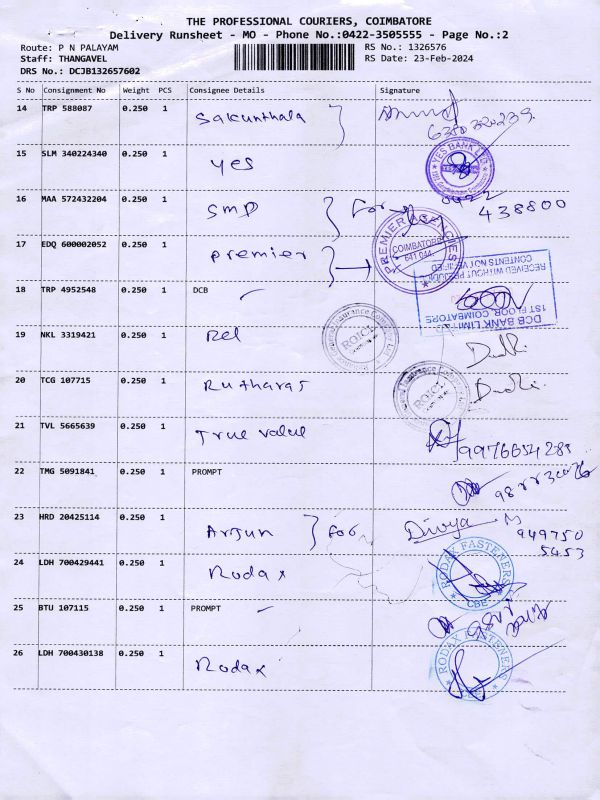 THE PROFESSIONAL COURIERS, COIMBATORE
Delivery Runsheet - MO - Phone No.:0422-3505555 - Page No.:2
Route: P N PALAYAM RS No.: 1326576
Staff: THANGAVEL RS Date: 23-Feb-2024
DRS No.: DCJB132657602
S No Consignment No Weight PCS Consignee Details Signature
14 TRP 588087 0.250 1 Sakunthala
15 SLM 340224340 0.250 1 yes
YES BANK
16 MAA 572432204 0.250 1 SMP For 0422
438800
17 EDQ 600002052 0.250 1 premier
PREMIER
COIMBATORE
641 044
RECEIVED WITHOUT PREJUDICE
CONTENTS NOT VERIFIED
18 TRP 4952548 0.250 1 DCB
DCB BANK LIMITED
1ST FLOOR, COIMBATORE
19 NKL 3319421 0.250 1 Rel
ROICL
20 TCG 107715 0.250 1
ROICL
21 TVL 5665639 0.250 1 True value
22 TMG 5091841 0.250 1 PROMPT
23 HRD 20425114 0.250 1 Arjun For Divya
949750
5453
24 LDH 700429441 0.250 1 Rodax
RODAX FASTENERS
CBE
25 BTU 107115 0.250 1 PROMPT
26 LDH 700430138 0.250 1 Rodax
RODAX FASTENERS